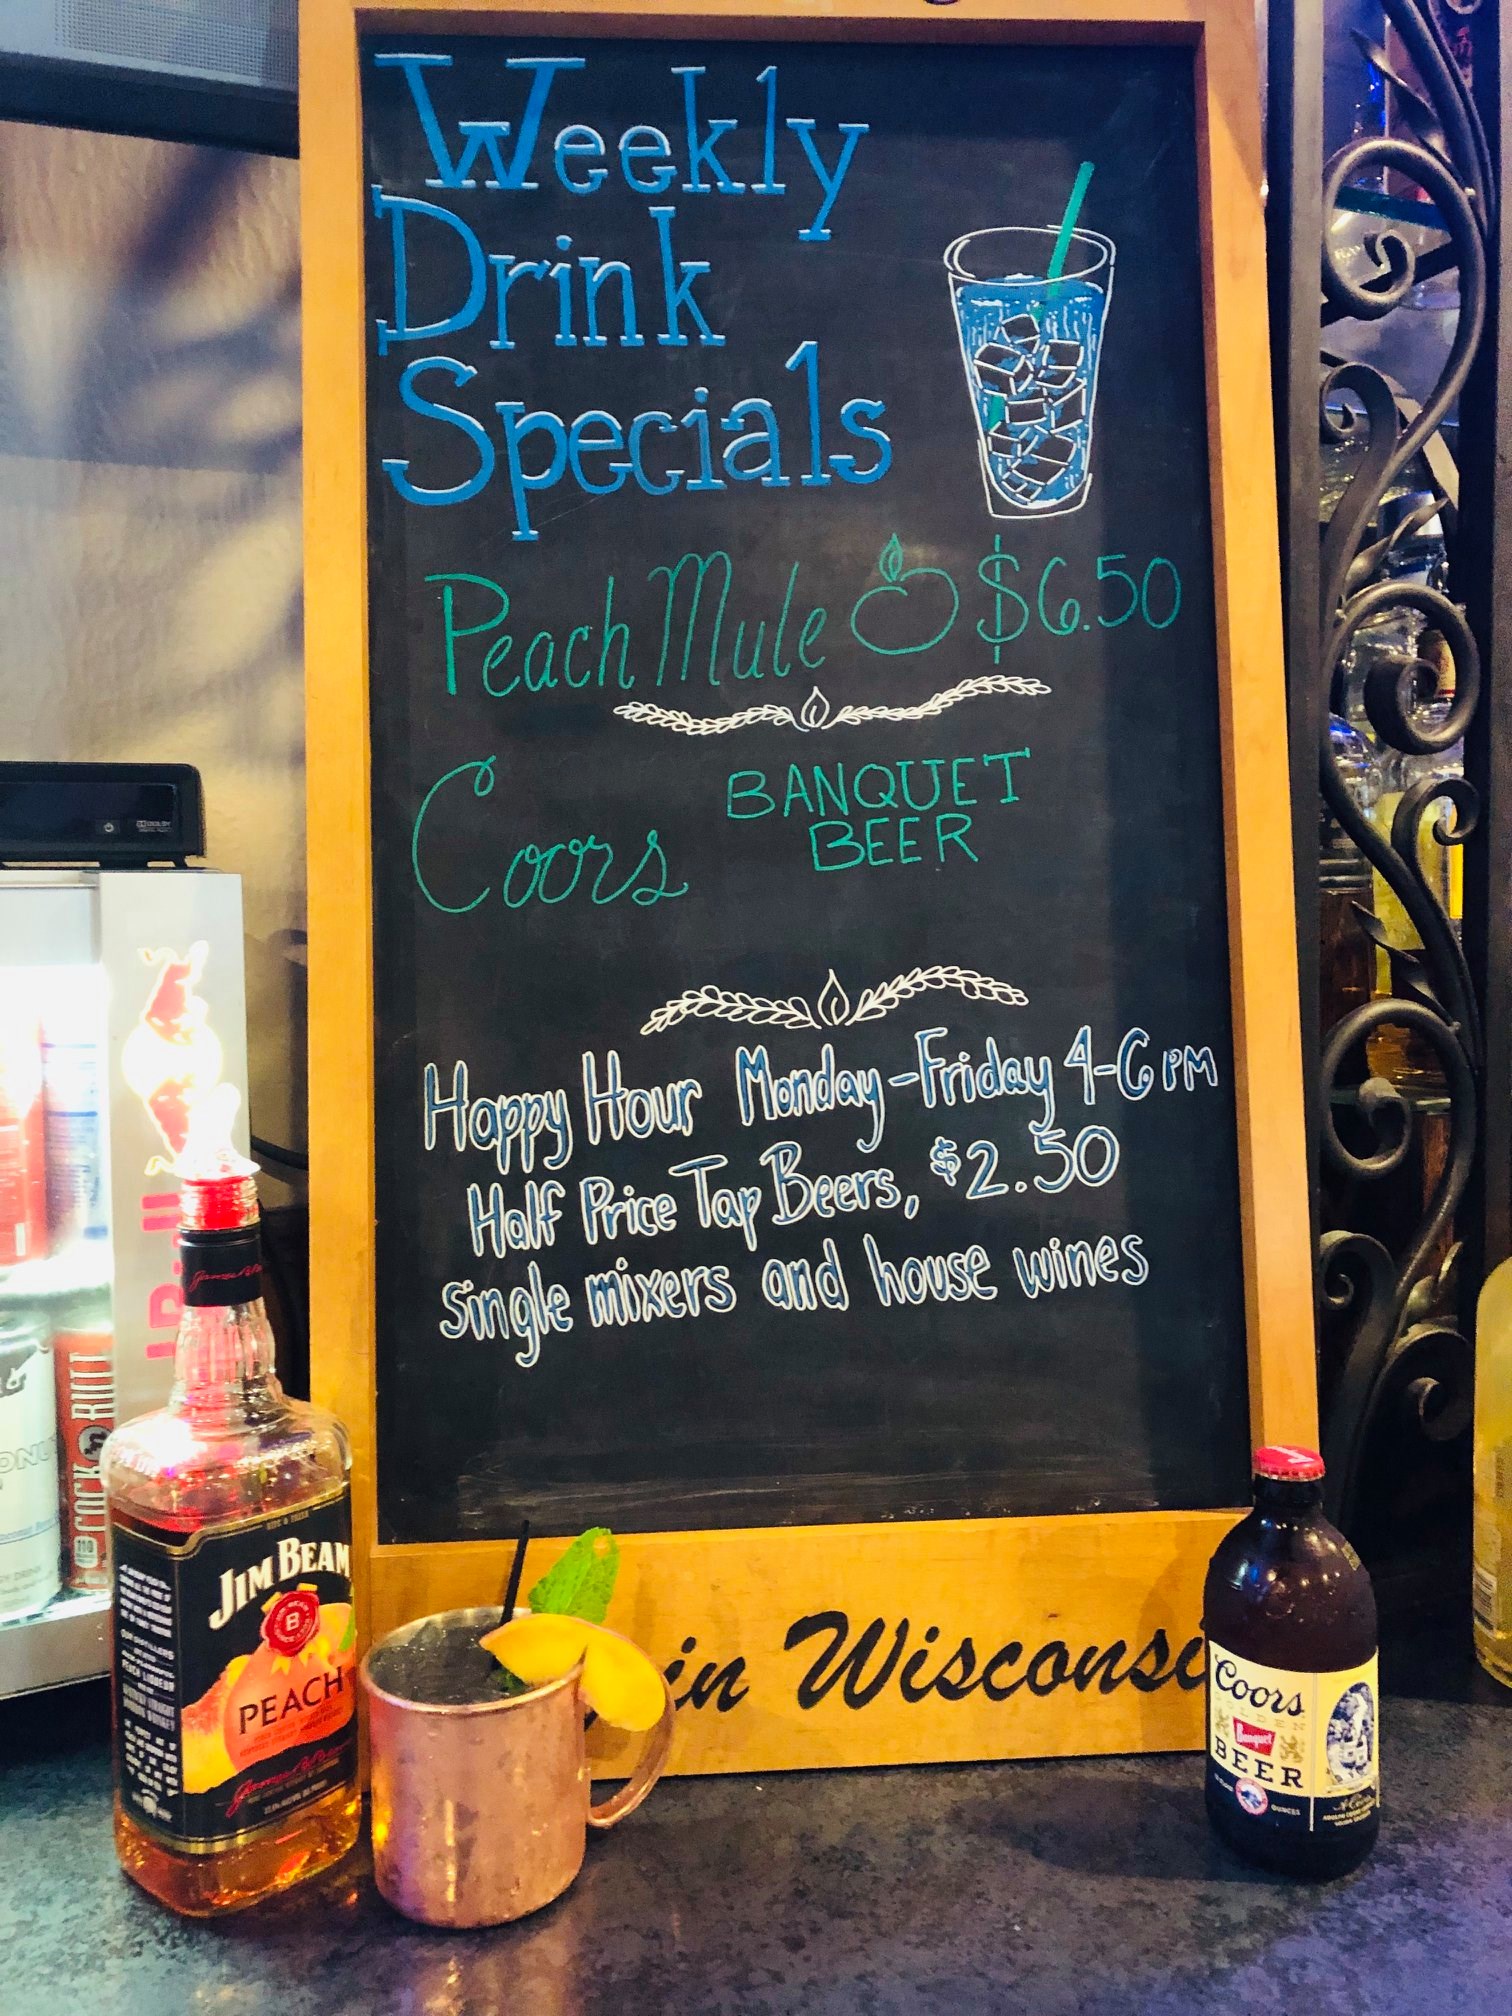 Weekly
Drink
Specials
Peach Mule $6.50
Coors BANQUET
BEER
Happy Hour Monday-Friday 4-6 PM
Half Price Tap Beers, $2.50
single mixers and house wines
in Wisconsi
JIM BEAM
B
PEACH
PEACH LIQUEUR
COCK BULL
110
Coors
GOLDEN
Banquet
BEER
OUNCES